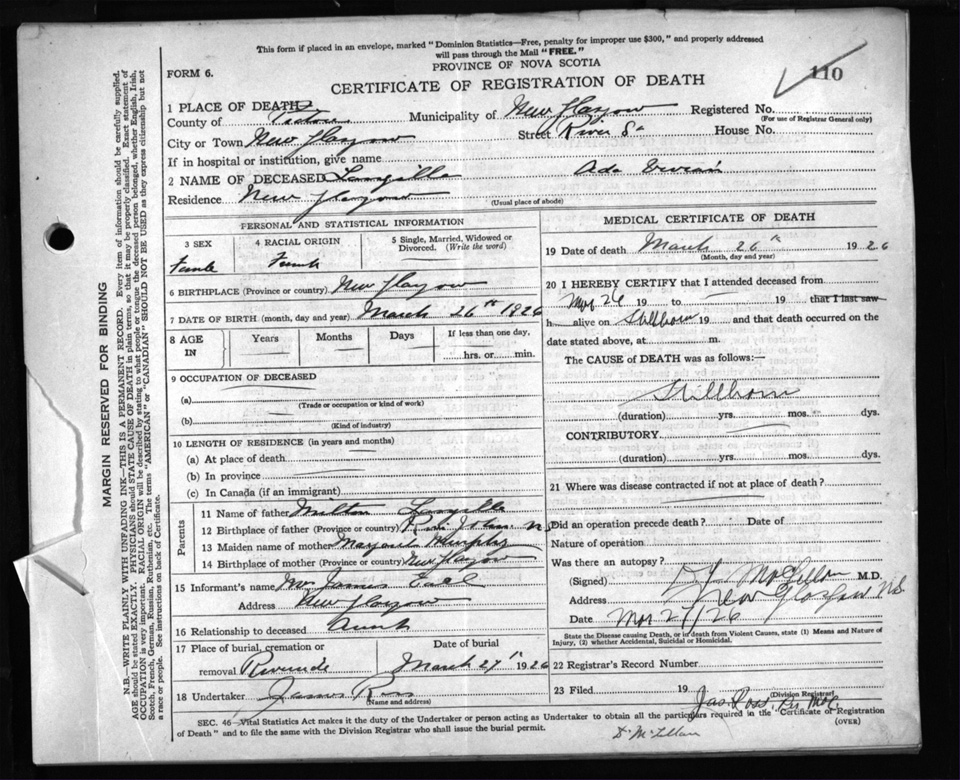 This form if placed in an envelope, marked "Dominion Statistics—Free, penalty for improper use $300," and properly addressed
will pass through the Mail "FREE."
PROVINCE OF NOVA SCOTIA
FORM 6.
110
CERTIFICATE OF REGISTRATION OF DEATH
1 PLACE OF DEATH
County of Pictou Municipality of New Glasgow Registered No.
(For use of Registrar General only)
City or Town New Glasgow Street River St House No.
If in hospital or institution, give name
2 NAME OF DECEASED Langille Ada Vivian
Residence New Glasgow
(Usual place of abode)
PERSONAL AND STATISTICAL INFORMATION
3 SEX 4 RACIAL ORIGIN 5 Single, Married, Widowed or
Divorced. (Write the word)
Female French
6 BIRTHPLACE (Province or country) New Glasgow
7 DATE OF BIRTH (month, day and year) March 26th 1926
8 AGE IN Years Months Days If less than one day,
hrs. or min.
9 OCCUPATION OF DECEASED
(a)
(Trade or occupation or kind of work)
(b)
(Kind of industry)
10 LENGTH OF RESIDENCE (in years and months)
(a) At place of death
(b) In province
(c) In Canada (if an immigrant)
Parents
11 Name of father Milton Langille
12 Birthplace of father (Province or country) River John N.S
13 Maiden name of mother Margaret Murphy
14 Birthplace of mother (Province or country) New Glasgow
15 Informant's name Mrs James
Address New Glasgow
16 Relationship to deceased Aunt
17 Place of burial, cremation or Date of burial
removal Riverside March 27th 1926
18 Undertaker James Ross
(Name and address)
MEDICAL CERTIFICATE OF DEATH
19 Date of death March 26th 1926
(Month, day and year)
20 I HEREBY CERTIFY that I attended deceased from
Mar 26 19 to 19 that I last saw
h alive on Stillborn 19 and that death occurred on the
date stated above, at m.
The CAUSE of DEATH was as follows:—
Stillborn
(duration) yrs. mos. dys.
CONTRIBUTORY
(duration) yrs. mos. dys.
21 Where was disease contracted if not at place of death?
Did an operation precede death? Date of
Nature of operation
Was there an autopsy?
(Signed) McLellan M.D.
Address New Glasgow N.S
Date Mar 27/26
State the Disease causing Death, or in death from Violent Causes, state (1) Means and Nature of
Injury, (2) whether Accidental, Suicidal or Homicidal.
22 Registrar's Record Number
23 Filed 19 Jas. Ross
(Division Registrar)
SEC. 46—Vital Statistics Act makes it the duty of the Undertaker or person acting as Undertaker to obtain all the particulars required in the "Certificate of Registration
of Death" and to file the same with the Division Registrar who shall issue the burial permit.
(OVER)
Dr McLellan
MARGIN RESERVED FOR BINDING
N.B.—WRITE PLAINLY WITH UNFADING INK—THIS IS A PERMANENT RECORD. Every item of information should be carefully supplied.
AGE should be stated EXACTLY. PHYSICIANS should STATE CAUSE OF DEATH in plain terms, so that it may be properly classified. Exact statement of
OCCUPATION is very important. RACIAL ORIGIN will be described by stating to what people or tongue the deceased person belonged, whether English, Irish,
Scotch, French, German, Russian, Ruthenian, etc. The terms "AMERICAN" or "CANADIAN" SHOULD NOT BE USED as they express citizenship but not
a race or people. See instructions on back of Certificate.